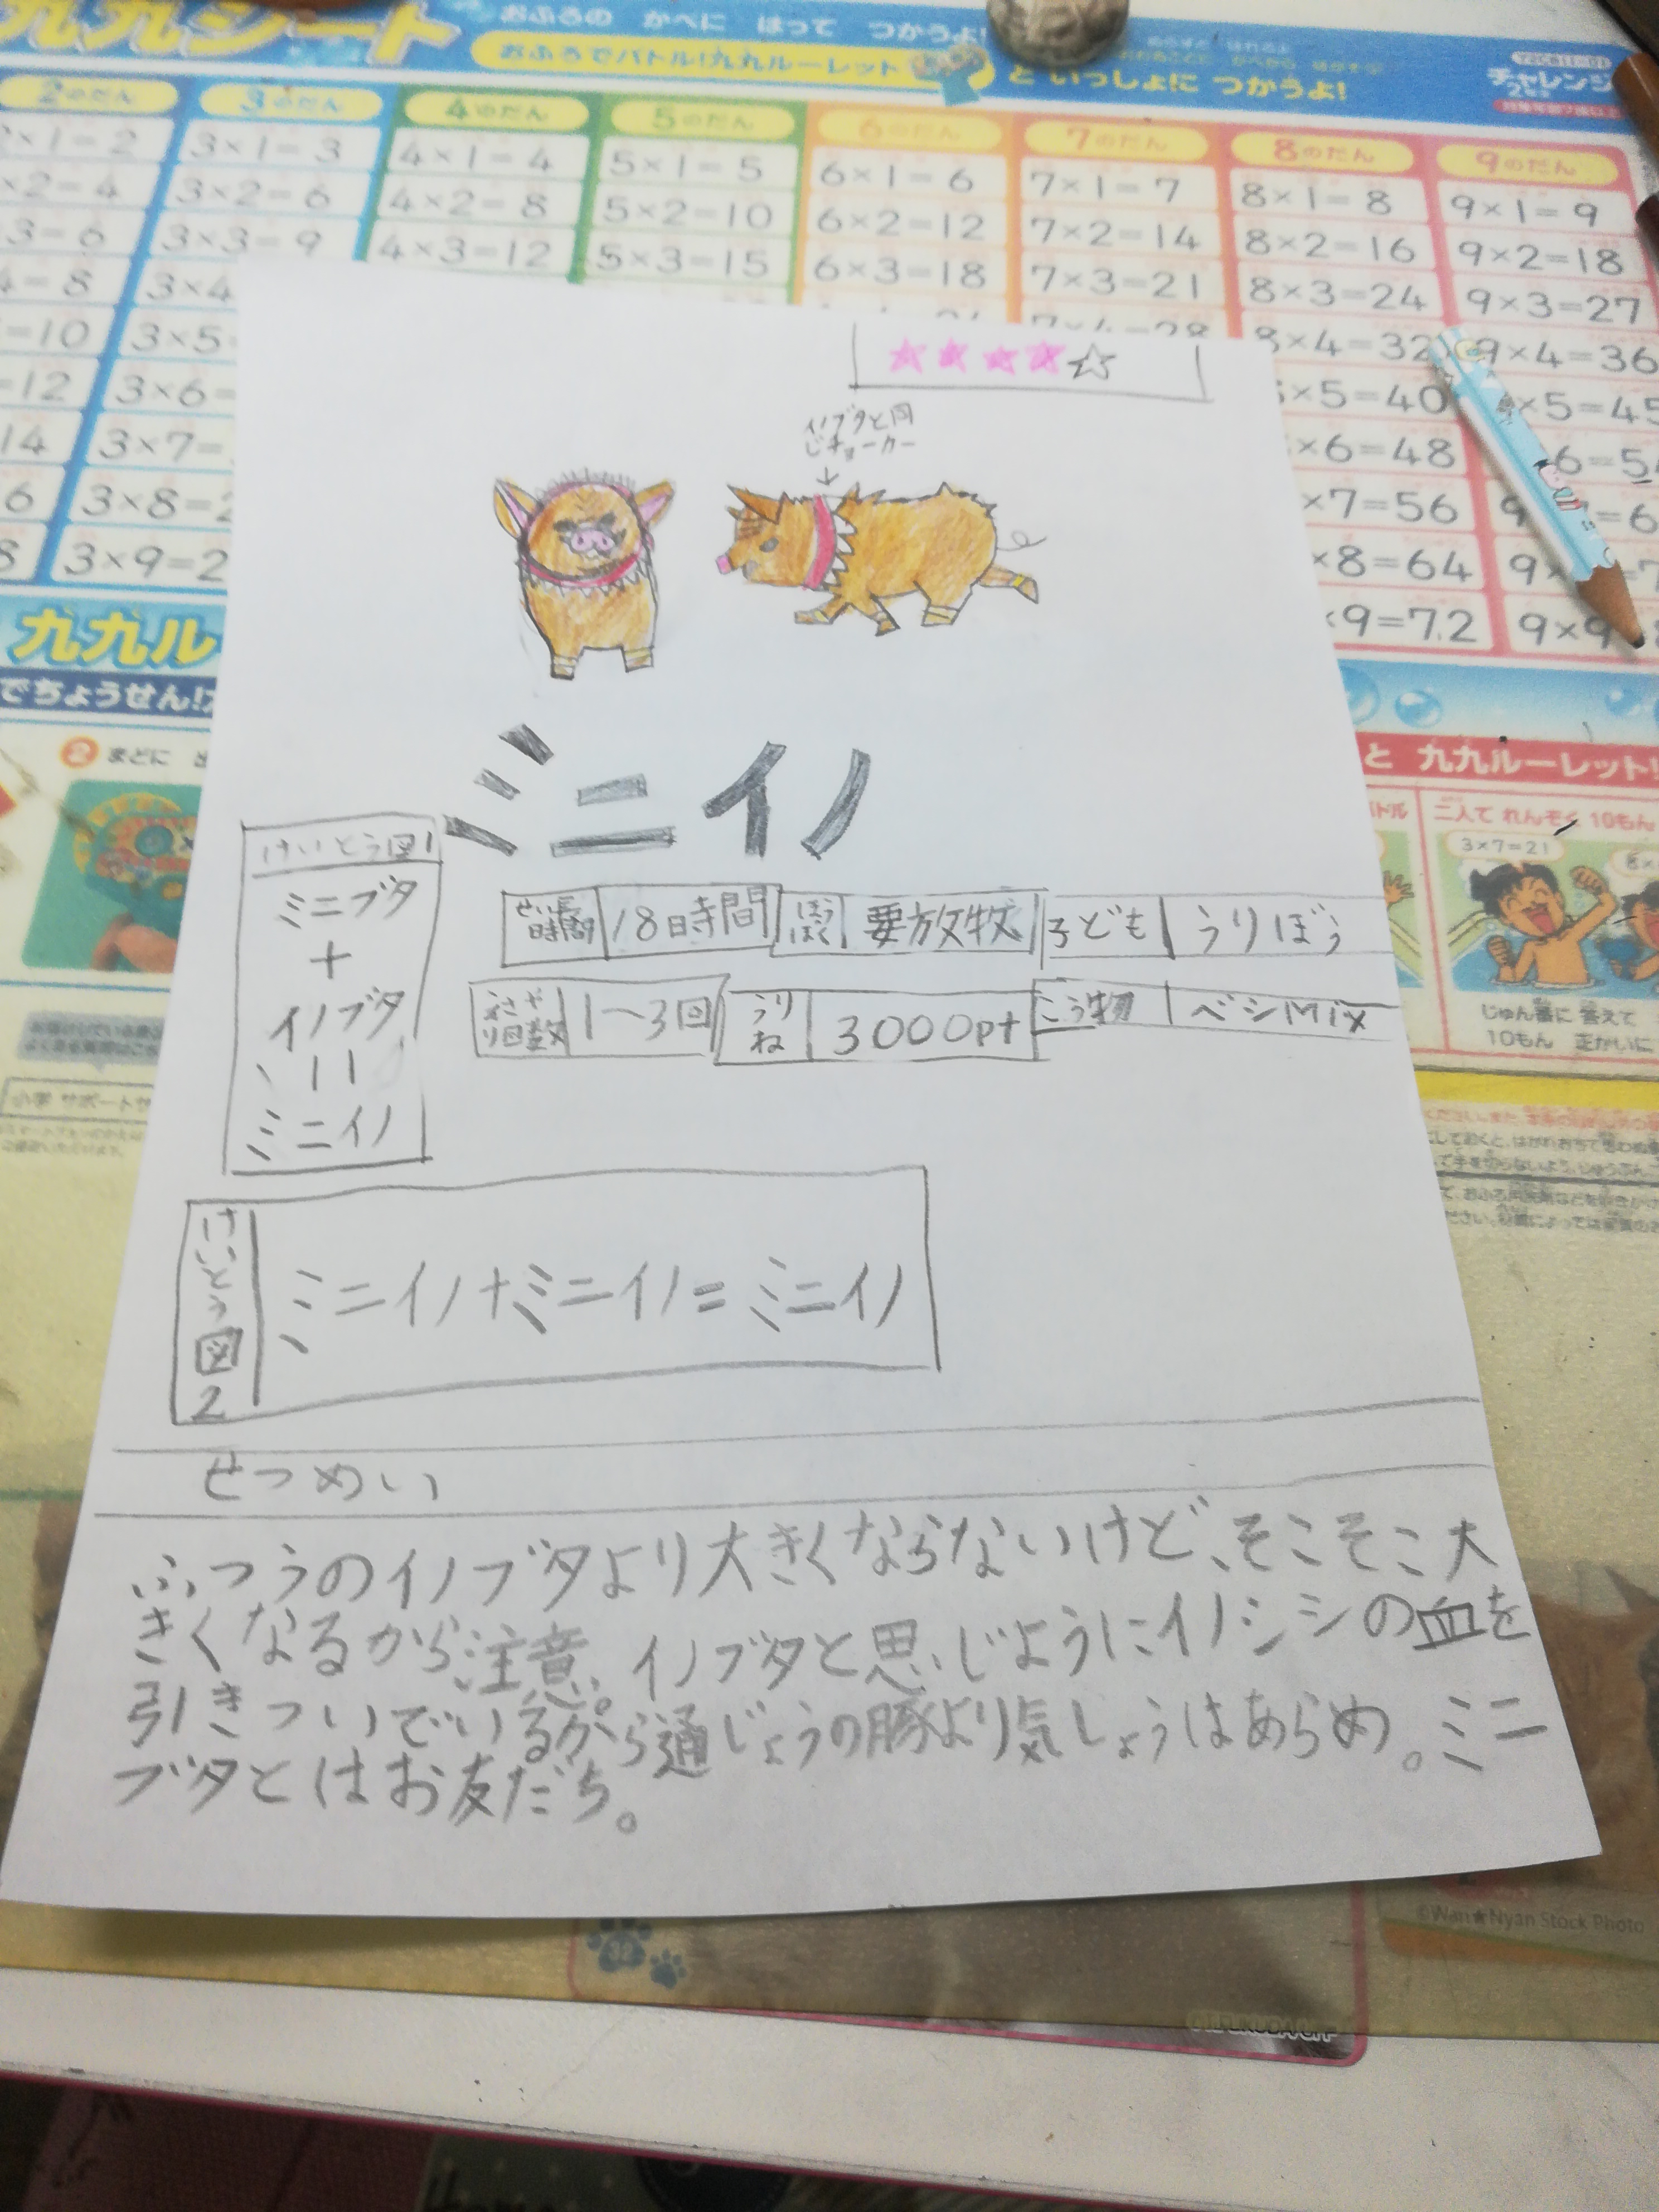 九九シート
おふろの かべに はって つかうよ!
おふろでバトル!九九ルーレット
と いっしょに つかうよ!
チャレンジ
2のだん 3のだん 4のだん 5のだん 6のだん 7のだん 8のだん 9のだん
×1=2 3×1=3 4×1=4 5×1=5 6×1=6 7×1=7 8×1=8 9×1=9
×2=4 3×2=6 4×2=8 5×2=10 6×2=12 7×2=14 8×2=16 9×2=18
3=6 3×3=9 4×3=12 5×3=15 6×3=18 7×3=21 8×3=24 9×3=27
=8 3×4 8×4=32 9×4=36
=10 3×5 ×5=40 ×5=45
=12 3×6= ×6=48 6=54
14 3×7= ×7=56
6 3×8=2 ×8=64
8 3×9=2 ×9=72 9×9
イノブタと同
じチョーカー
↓
ミニイノ
けいとう図1
ミニブタ
+
イノブタ
=
ミニイノ
せい長時間 18時間 ほうぼく 要放牧 子ども うりぼう
えさやり回数 1〜3回 うりね 3000pt こう物 ベジMix
けいとう図2
ミニイノ+ミニイノ=ミニイノ
せつめい
ふつうのイノブタより大きくならないけど、そこそこ大
きくなるから注意。イノブタと思いじようにイノシシの血を
引きついでいるから通じょうの豚より気しょうはあらめ。ミニ
ブタとはお友だち。
九九ル
でちょうせん!
2 まどに
と 九九ルーレット!
二人で れんぞく 10もん
3×7=21
じゅん番に 答えて
10もん 正かいに
©Wan★Nyan Stock Photo